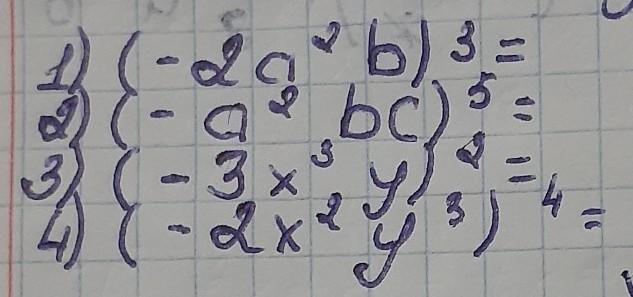 1) (-2a² b)³ =
2) (-a² bc)⁵ =
3) (-3x³ y)² =
4) (-2x² y³)⁴ =